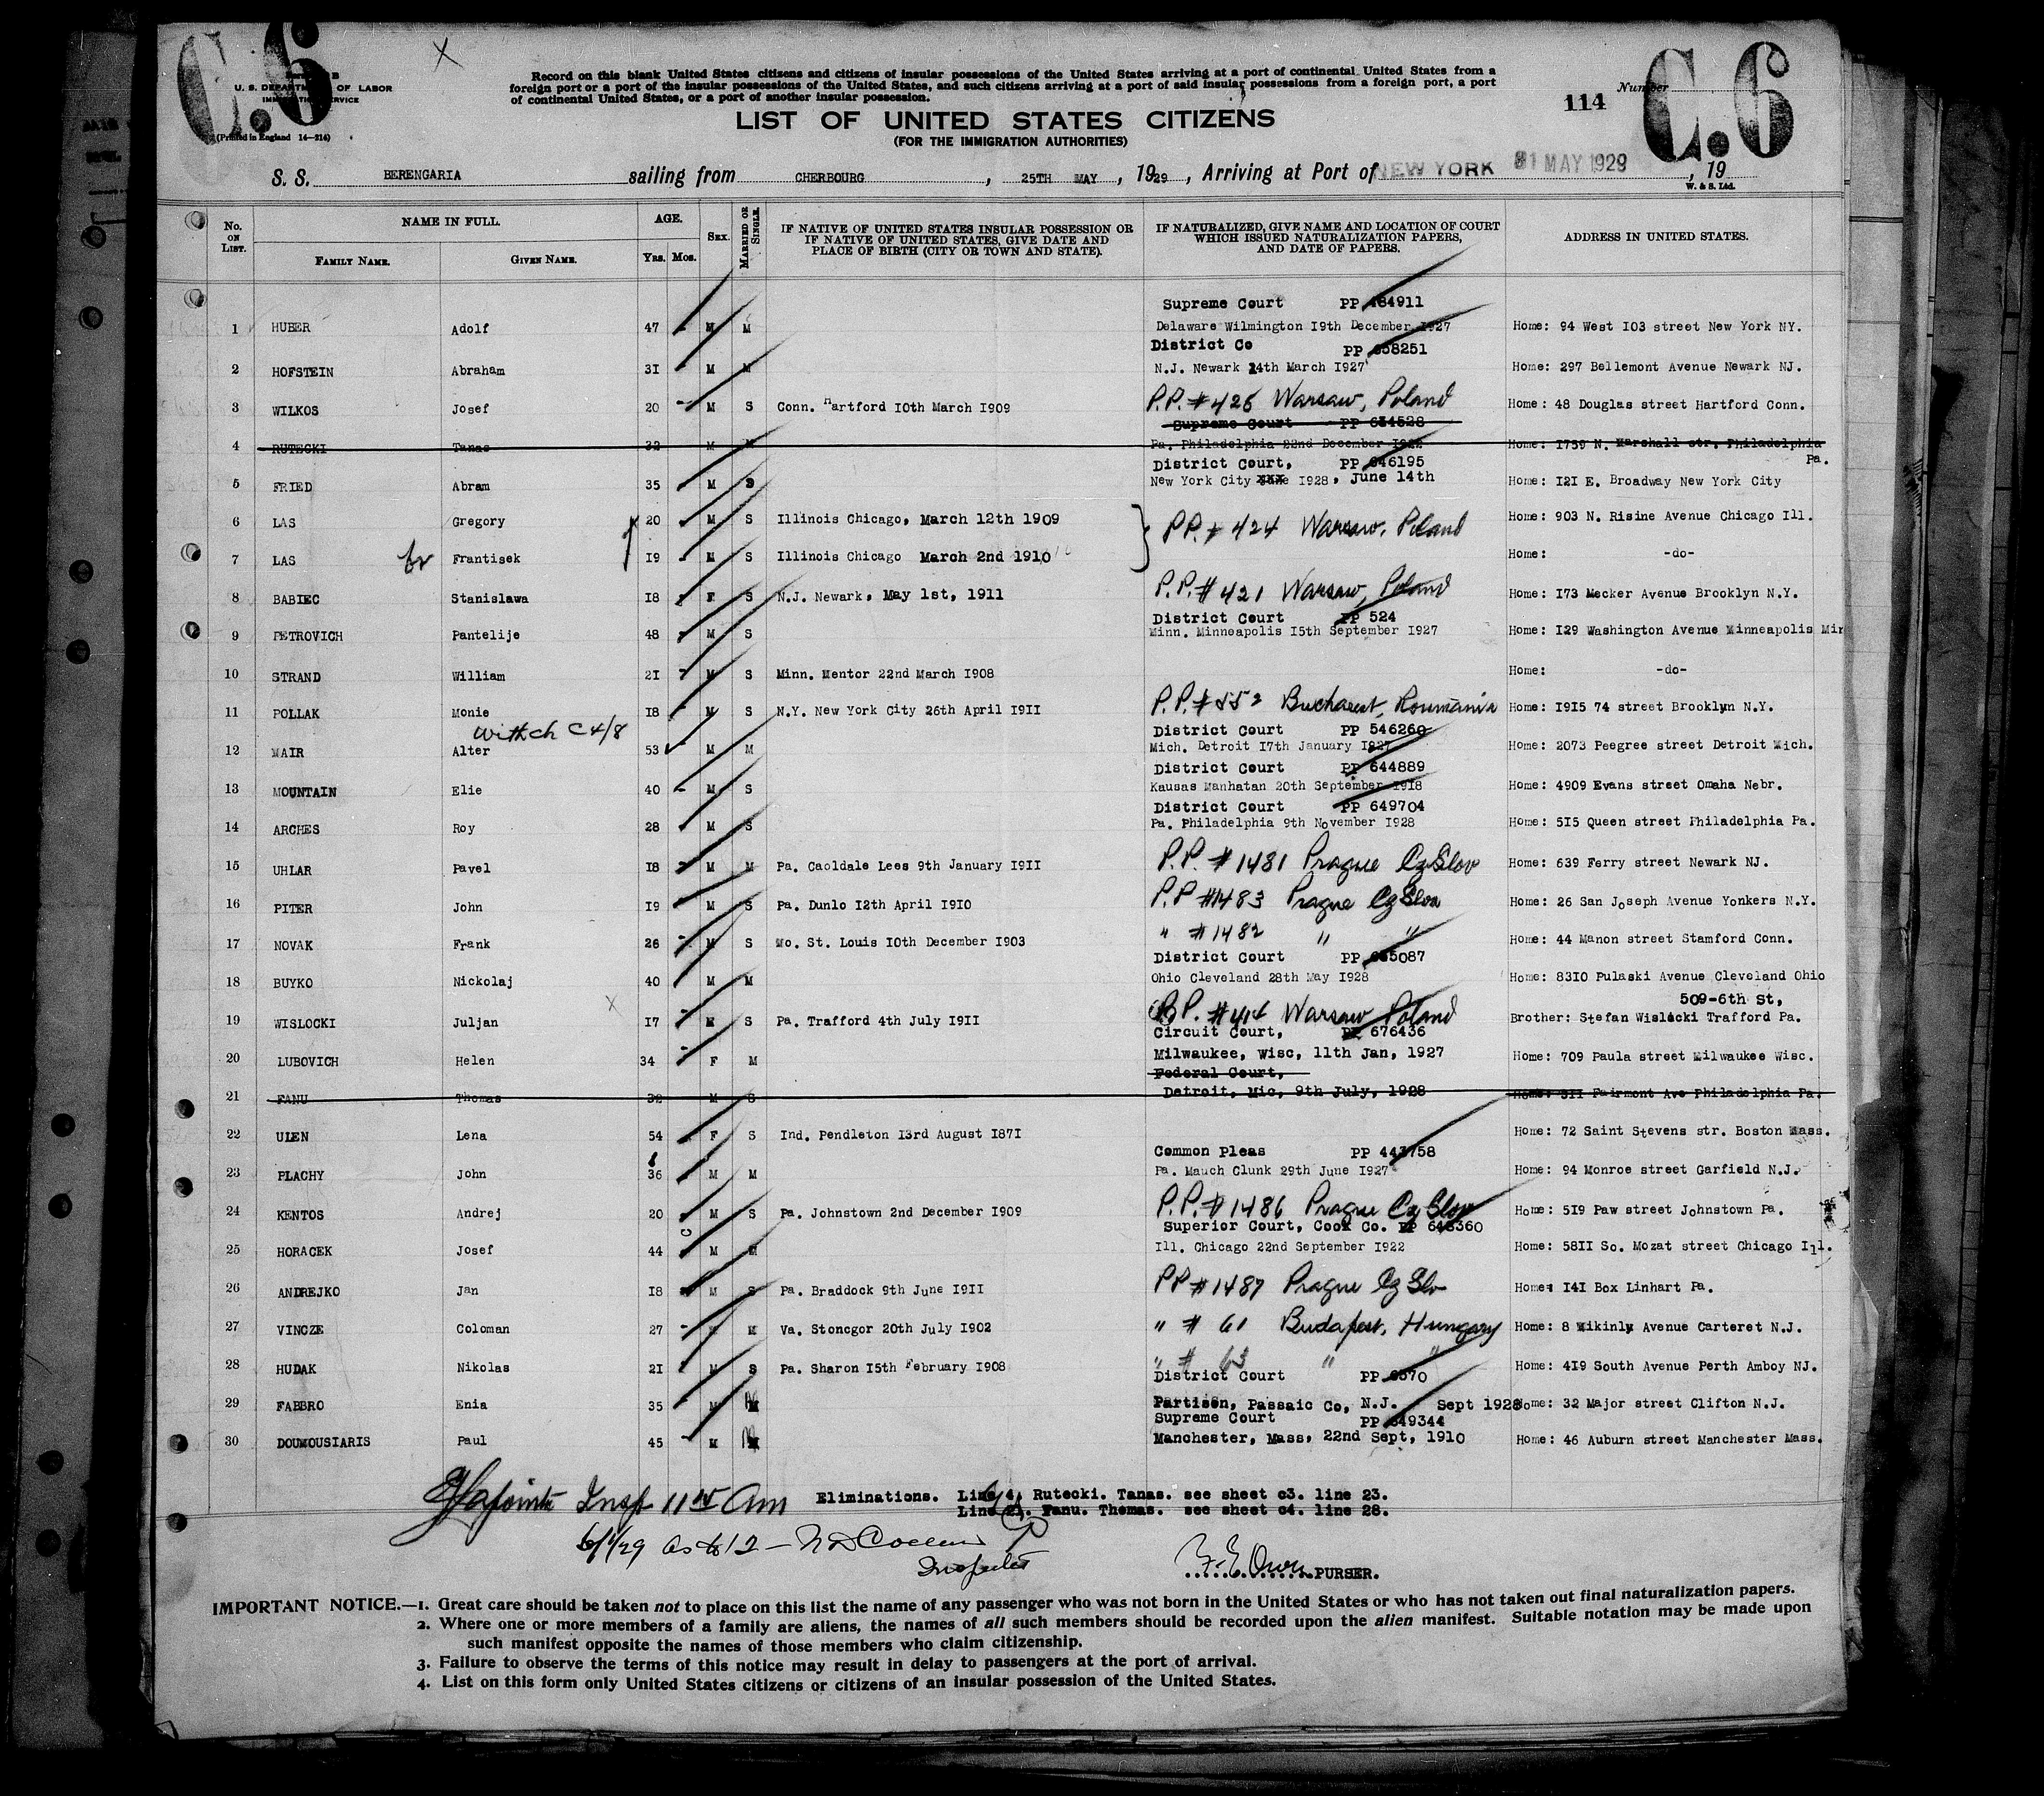 C.6
U. S. DEPARTMENT OF LABOR
IMMIGRATION SERVICE
(Printed in England 14—214)
X
Record on this blank United States citizens and citizens of insular possessions of the United States arriving at a port of continental United States from a
foreign port or a port of the insular possessions of the United States, and such citizens arriving at a port of said insular possessions from a foreign port, a port
of continental United States, or a port of another insular possession.
114 Number C.6
LIST OF UNITED STATES CITIZENS
(FOR THE IMMIGRATION AUTHORITIES)
S. S. BERENGARIA sailing from CHERBOURG, 25TH MAY, 1929, Arriving at Port of NEW YORK 31 MAY 1929, 19
W. & S. Ltd.
No. ON LIST. NAME IN FULL. FAMILY NAME. GIVEN NAME. AGE. YRS. MOS. SEX. MARRIED OR SINGLE. IF NATIVE OF UNITED STATES INSULAR POSSESSION OR IF NATIVE OF UNITED STATES, GIVE DATE AND PLACE OF BIRTH (CITY OR TOWN AND STATE). IF NATURALIZED, GIVE NAME AND LOCATION OF COURT WHICH ISSUED NATURALIZATION PAPERS, AND DATE OF PAPERS. ADDRESS IN UNITED STATES.
Supreme Court PP 484911
1 HUBER Adolf 47 M M Delaware Wilmington I9th December I927 Home: 94 West I03 street New York NY.
District Co PP 658251
2 HOFSTEIN Abraham 3I M M N.J. Newark 14th March I927 Home: 297 Bellemont Avenue Newark NJ.
3 WILKOS Josef 20 M S Conn. Hartford I0th March I909 P.P. # 426 Warsaw, Poland Home: 48 Douglas street Hartford Conn.
Supreme Court PP 634528
4 RUTECKI Tanas 32 M M Pa. Philadelphia 22nd December I922 Home: I759 N. Marshall str. Philadelphia Pa.
District Court, PP 646195
5 FRIED Abram 35 M S New York City June I928, June 14th Home: I2I E. Broadway New York City
6 LAS Gregory 20 M S Illinois Chicago, March 12th 1909 P.P. # 424 Warsaw, Poland Home: 903 N. Risine Avenue Chicago Ill.
7 LAS Frantisek I9 M S Illinois Chicago March 2nd 1910 Home: -do-
8 BABIEC Stanislawa I8 F S N.J. Newark, May 1st, 1911 P.P. # 421 Warsaw, Poland Home: I73 Mecker Avenue Brooklyn N.Y.
District Court PP 524
9 PETROVICH Pantelije 48 M S Minn. Minneapolis I5th September I927 Home: I29 Washington Avenue Minneapolis Min
10 STRAND William 2I M S Minn. Mentor 22nd March I908 Home: -do-
11 POLLAK Monie I8 M S N.Y. New York City 26th April I9II P.P. # 552 Bucharest, Roumania Home: I9I5 74 street Brooklyn N.Y.
With ch C4/8
District Court PP 546260
12 MAIR Alter 53 M M Mich. Detroit I7th January I927 Home: 2073 Peegree street Detroit Mich.
District Court PP 644889
13 MOUNTAIN Elie 40 M S Kausas Manhatan 20th September I918 Home: 4909 Evans street Omaha Nebr.
District Court PP 649704
14 ARCHES Roy 28 M S Pa. Philadelphia 9th November I928 Home: 5I5 Queen street Philadelphia Pa.
15 UHLAR Pavel I8 M M Pa. Caoldale Lees 9th January I9II P.P. # 1481 Prague Cz Slov Home: 639 Ferry street Newark NJ.
16 PITER John I9 M S Pa. Dunlo I2th April I9I0 P.P #1483 Prague Cz Slov Home: 26 San Joseph Avenue Yonkers N.Y.
17 NOVAK Frank 26 M S Mo. St. Louis I0th December I903 " #1482 " " Home: 44 Manon street Stamford Conn.
District Court PP 635087
18 BUYKO Nickolaj 40 M M Ohio Cleveland 28th May I928 Home: 83I0 Pulaski Avenue Cleveland Ohio
509-6th St,
19 WISLOCKI Juljan I7 M S Pa. Trafford 4th July I9II P.P. #414 Warsaw Poland Brother: Stefan Wislocki Trafford Pa.
Circuit Court, PP 676436
20 LUBOVICH Helen 34 F M Milwaukee, Wisc, 11th Jan, 1927 Home: 709 Paula street Milwaukee Wisc.
Federal Court,
21 FANU Thomas 32 M S Detroit, Mic, 9th July, 1928 Home: 3II Fairmont Ave Philadelphia Pa.
22 ULEN Lena 54 F S Ind. Pendleton I3rd August I87I Home: 72 Saint Stevens str. Boston Mass.
Common Pleas PP 443758
23 PLACHY John 36 M M Pa. Mauch Clunk 29th June I927 Home: 94 Monroe street Garfield N.J.
24 KENTOS Andrej 20 M S Pa. Johnstown 2nd December I909 P.P. # 1486 Prague Cz Slov Home: 5I9 Paw street Johnstown Pa.
Superior Court, Cook Co. PP 648360
25 HORACEK Josef 44 M M Ill. Chicago 22nd September I922 Home: 58II So. Mozat street Chicago Ill.
26 ANDREJKO Jan I8 M S Pa. Braddock 9th June I9II PP # 1487 Prague Cz Slv Home: I4I Box Linhart Pa.
27 VINCZE Coloman 27 M Va. Stonegor 20th July I902 " # 61 Budapest, Hungary Home: 8 Mikinly Avenue Carteret N.J.
28 HUDAK Nikolas 2I M S Pa. Sharon I5th February I908 " # 63 " " Home: 4I9 South Avenue Perth Amboy NJ.
District Court PP 6570
29 FABBRO Enia 35 M M Partison, Passaic Co, N.J. Sept 1928 Home: 32 Major street Clifton N.J.
Supreme Court PP 649344
30 DOUMOUSIARIS Paul 45 M M Manchester, Mass, 22nd Sept, 1910 Home: 46 Auburn street Manchester Mass.
Lapointe Insp 11 45 Am Eliminations. Line 4. Rutecki. Tanas. see sheet c3. line 23.
Line 21. Fanu. Thomas. see sheet c4. line 28.
6/1/29 as to 12 —
Inspector
PURSER.
IMPORTANT NOTICE.—1. Great care should be taken not to place on this list the name of any passenger who was not born in the United States or who has not taken out final naturalization papers.
2. Where one or more members of a family are aliens, the names of all such members should be recorded upon the alien manifest. Suitable notation may be made upon
such manifest opposite the names of those members who claim citizenship.
3. Failure to observe the terms of this notice may result in delay to passengers at the port of arrival.
4. List on this form only United States citizens or citizens of an insular possession of the United States.